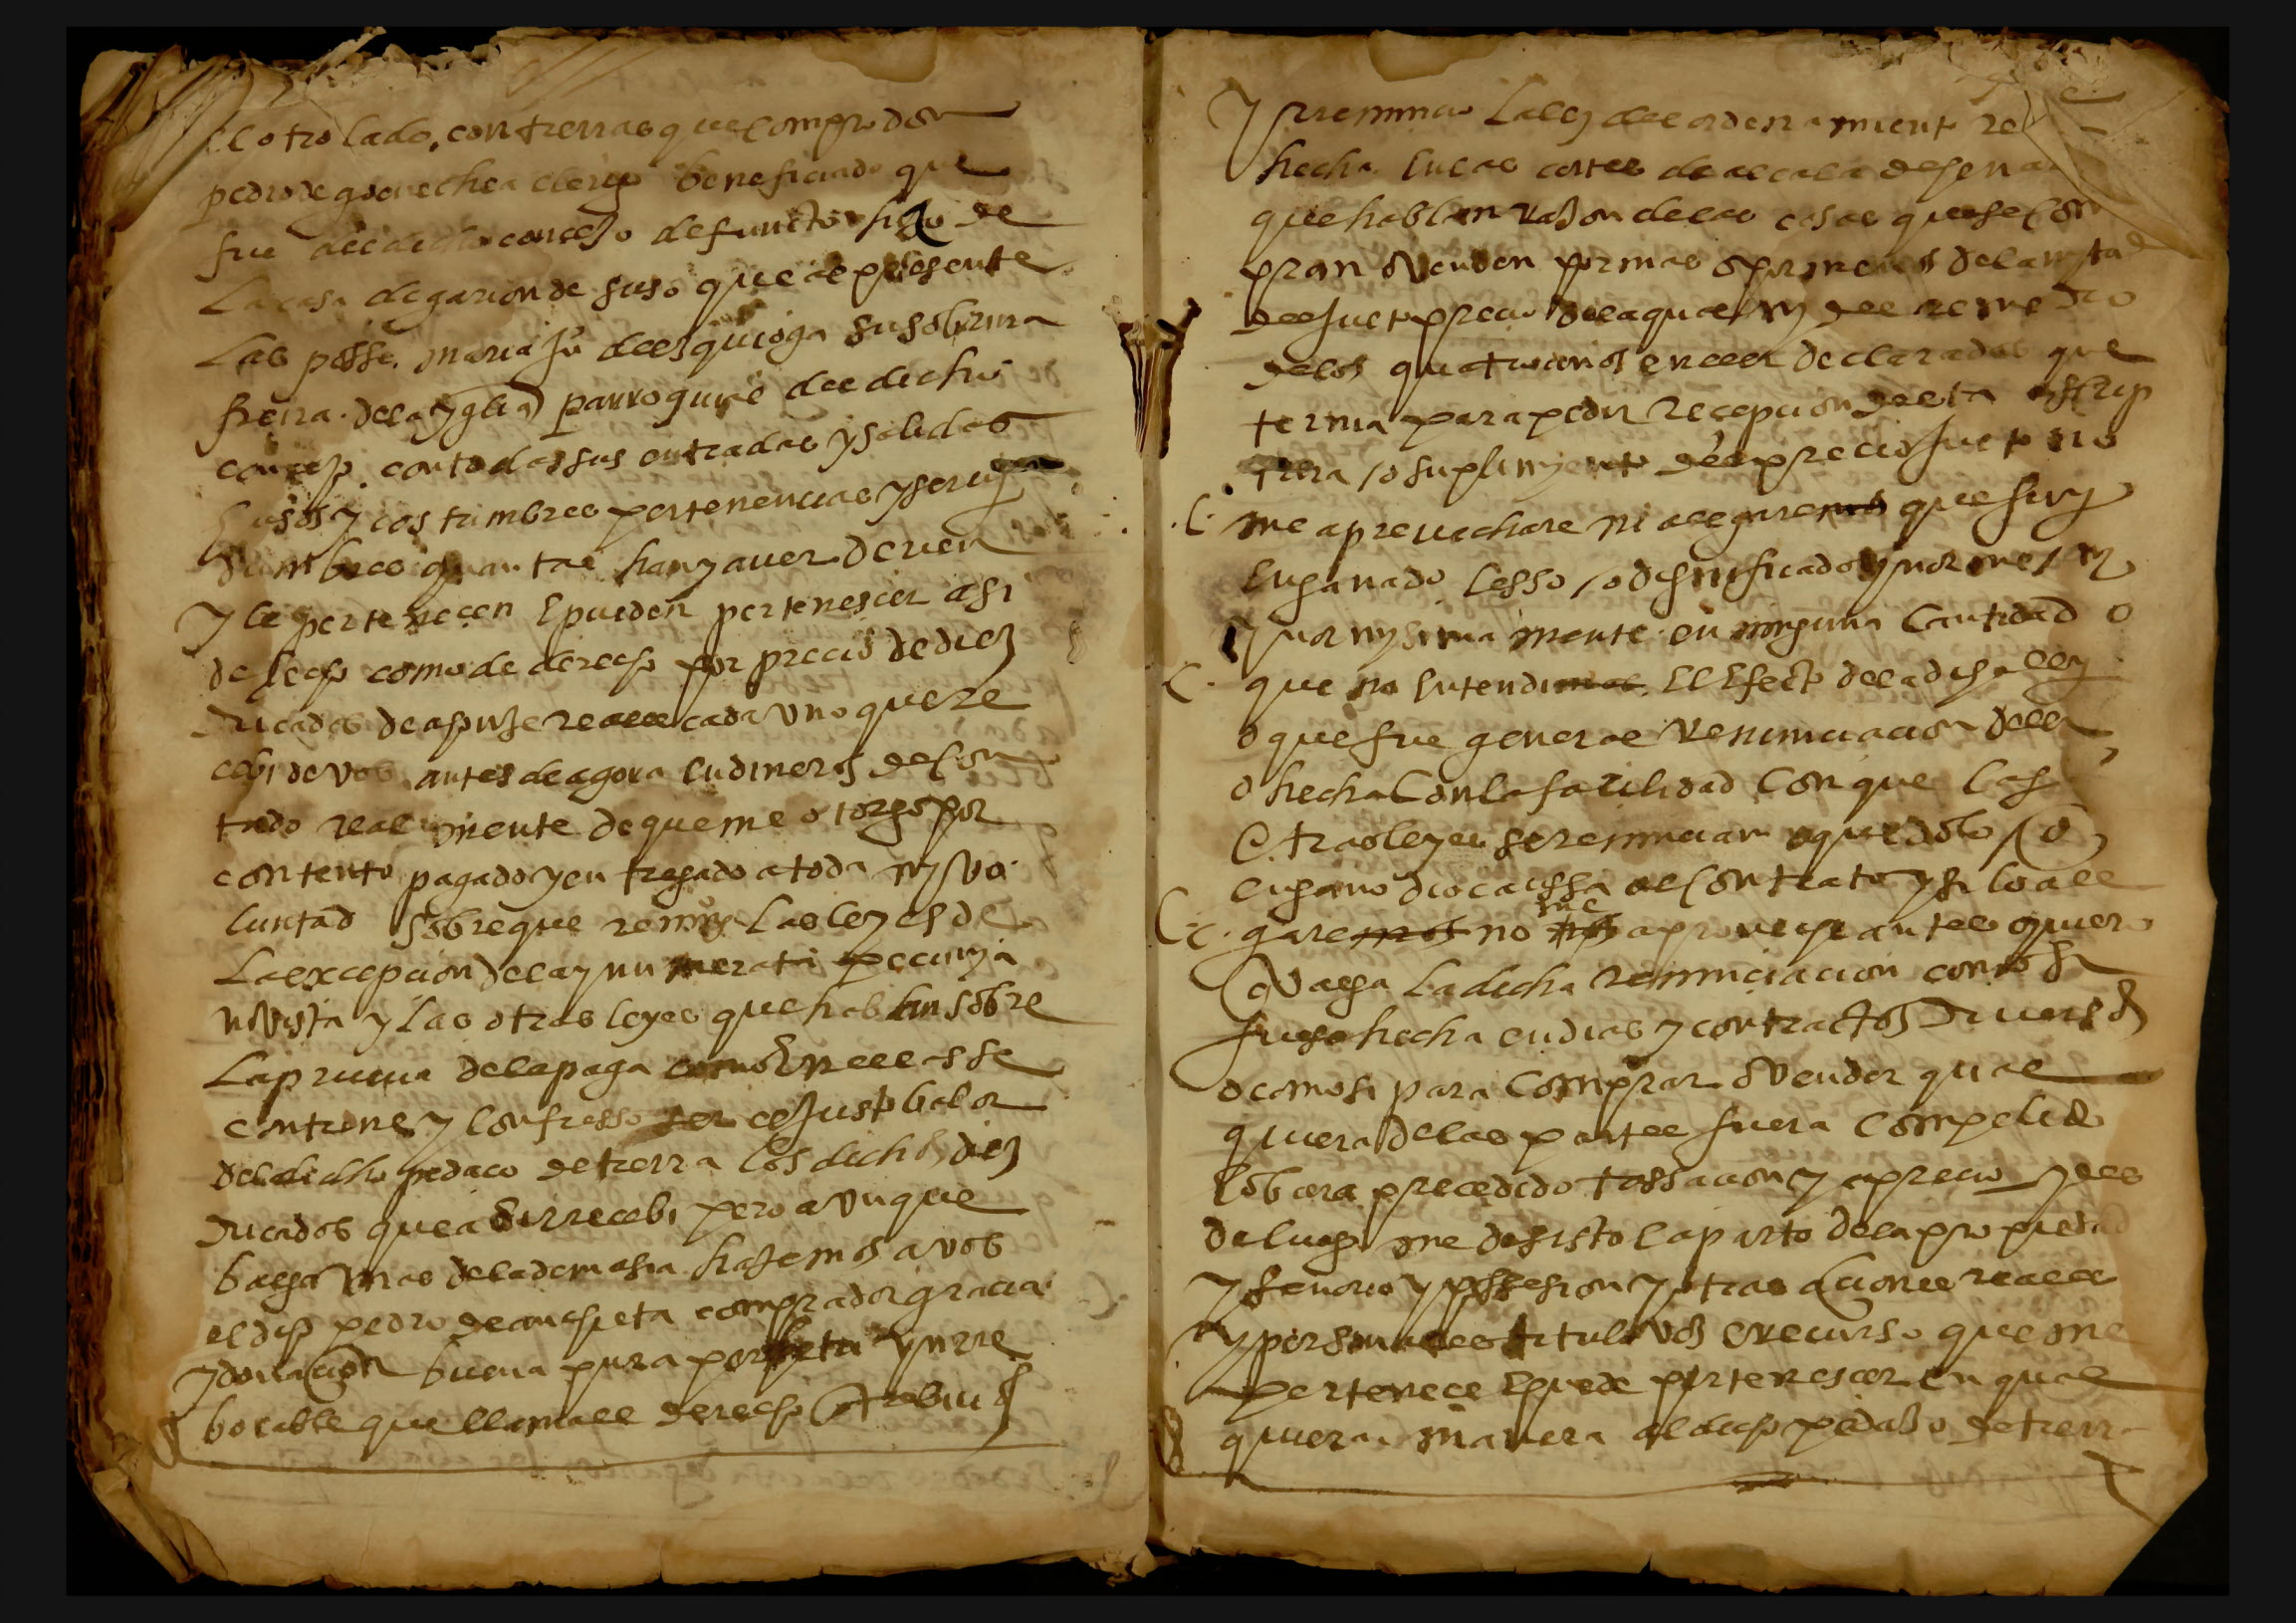 el otro lado, con tierras que compro don
pedro de goorechea clerigo beneficiado que
fue del dicho concejo defuncto hijo de
La casa de garion de suso que al presente
Las posse. maria Ju de esquioga su sobrina
freira. de la yglia parroquial del dicho
concejo. con todas sus entradas y salidas
usos y costumbres pertenencias y servi
dumbres quantas han y aver deven
y le pertenecen e pueden pertenescer asi
de fecho como de derecho por precio de diez
Ducados de a honze reales cada uno que re
cebi de vos antes de agora en dineros de con
tado realmente de que me otorgo por
contento pagado y entregado a toda my vo
luntad sobre que renuncio Las leyes de
La excepcion de la ynnumerata pecunya
no vista y Las otras leyes que hablan sobre
La prueva de la paga como en ellas se
contiene y confiesso ser el justo balor
del dicho pedaço de tierra los dichos diez
Ducados que a si recebi pero aunque
balga mas de la demasia hazemos a vos
el dicho pedro de anchieta comprador gracia
y donacion buena pura perfeta ynrre
bocable que llama el derecho entre bivos
y rrenuncio La ley del ordenamiento re
hecha en las cortes de alcala de hena
que hablan en razon de las cosas que se con
pran o venden por mas o por menos de la mitad
del justo precio de la qual ny del remedio
de los quatro años en ella declarados que
ternia para pedir recepcion desta escrip
tura / o suplimyento del precio justo no
me aprevechare ni alegaremos que fuy
engañado lesso / o dagnificado ynorme / ny
ynormysima mente en ninguna cantidad o
que no entendimos el efecto de la dicha ley
o que fue general renunciacion della
o hecha con la facilidad con que las
otras leyes se renuncian o que dolo / o
engaño dio caussa al contrato y si lo ale
garemos no nos me aproveche antes quiero
valga La dicha renunciacion como si
fuese hecha en dias y contractos Diversos
o como si para comprar o vender qual
quiera de las partes fuera compelido
e obiera precedido tassacion y aprecio y des
de luego me desisto e aparto de la propiedad
y señorio y possesion y otras aciones reales
y personales titulo vos e recurso que me
pertenece e puede pertenescer en qual
quiera manera al dicho pedaço de tierra